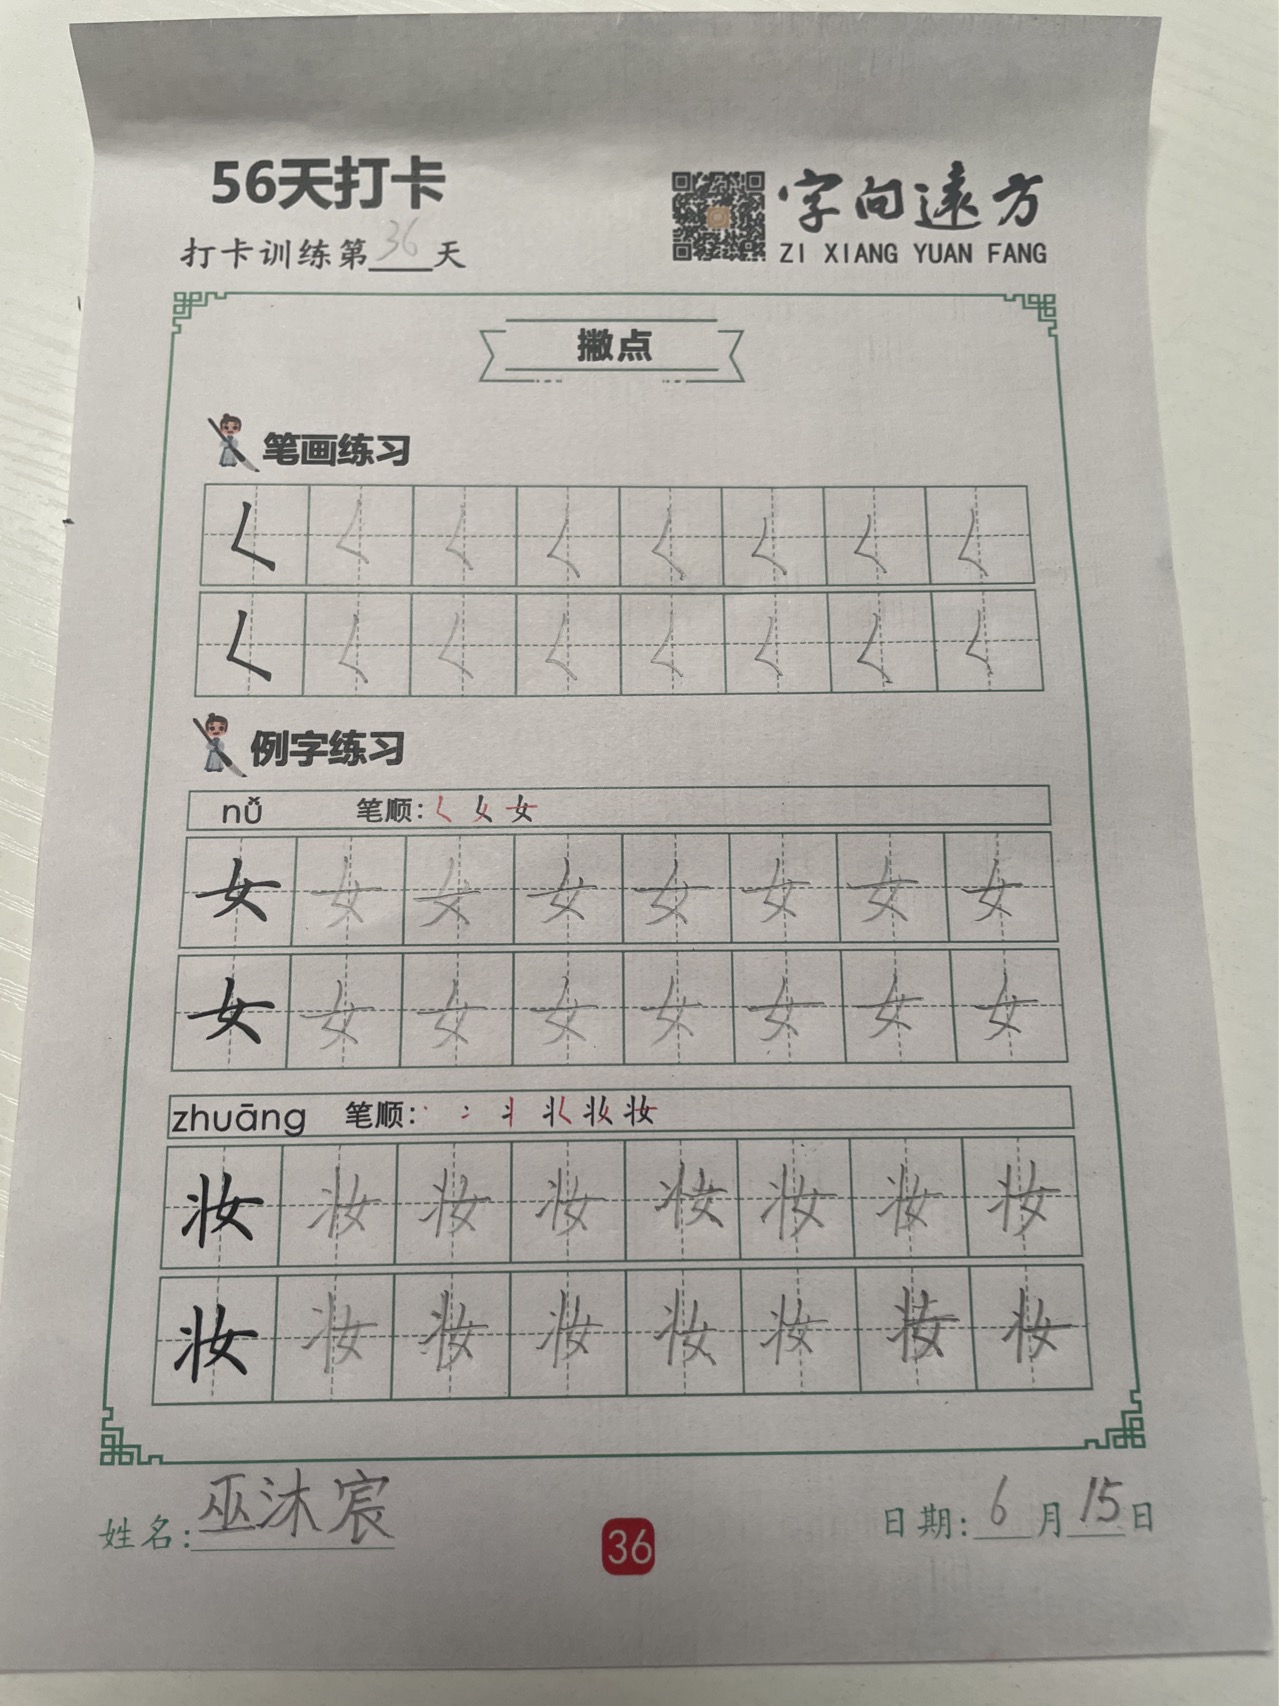 56天打卡
字向遠方
打卡训练第36天
ZI XIANG YUAN FANG
撇点
笔画练习
𡿨 𡿨 𡿨 𡿨 𡿨 𡿨 𡿨 𡿨
𡿨 𡿨 𡿨 𡿨 𡿨 𡿨 𡿨 𡿨
例字练习
nǚ 笔顺: 女
女 女 女 女 女 女 女 女
女 女 女 女 女 女 女 女
zhuāng 笔顺: 妆
妆 妆 妆 妆 妆 妆 妆 妆
妆 妆 妆 妆 妆 妆 妆 妆
姓名: 巫沐宸
日期: 6月15日
36